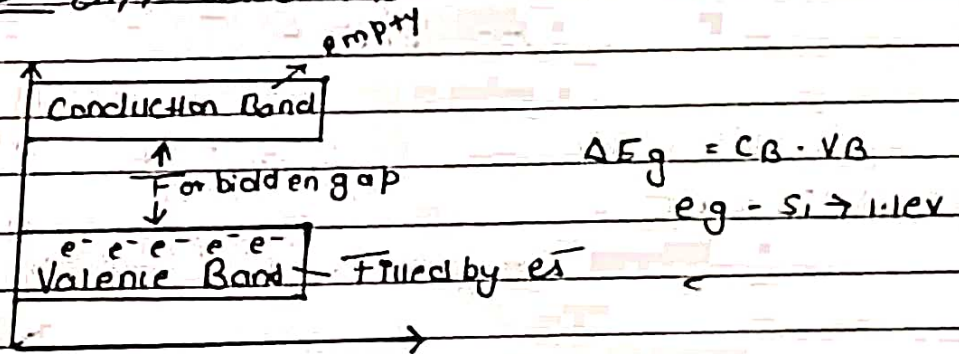 empty
Conduction Band
Forbidden gap
ΔEg = CB · VB
e.g - Si → 1.1ev
e⁻ e⁻ e⁻ e⁻ e⁻
Valence Band Filled by es